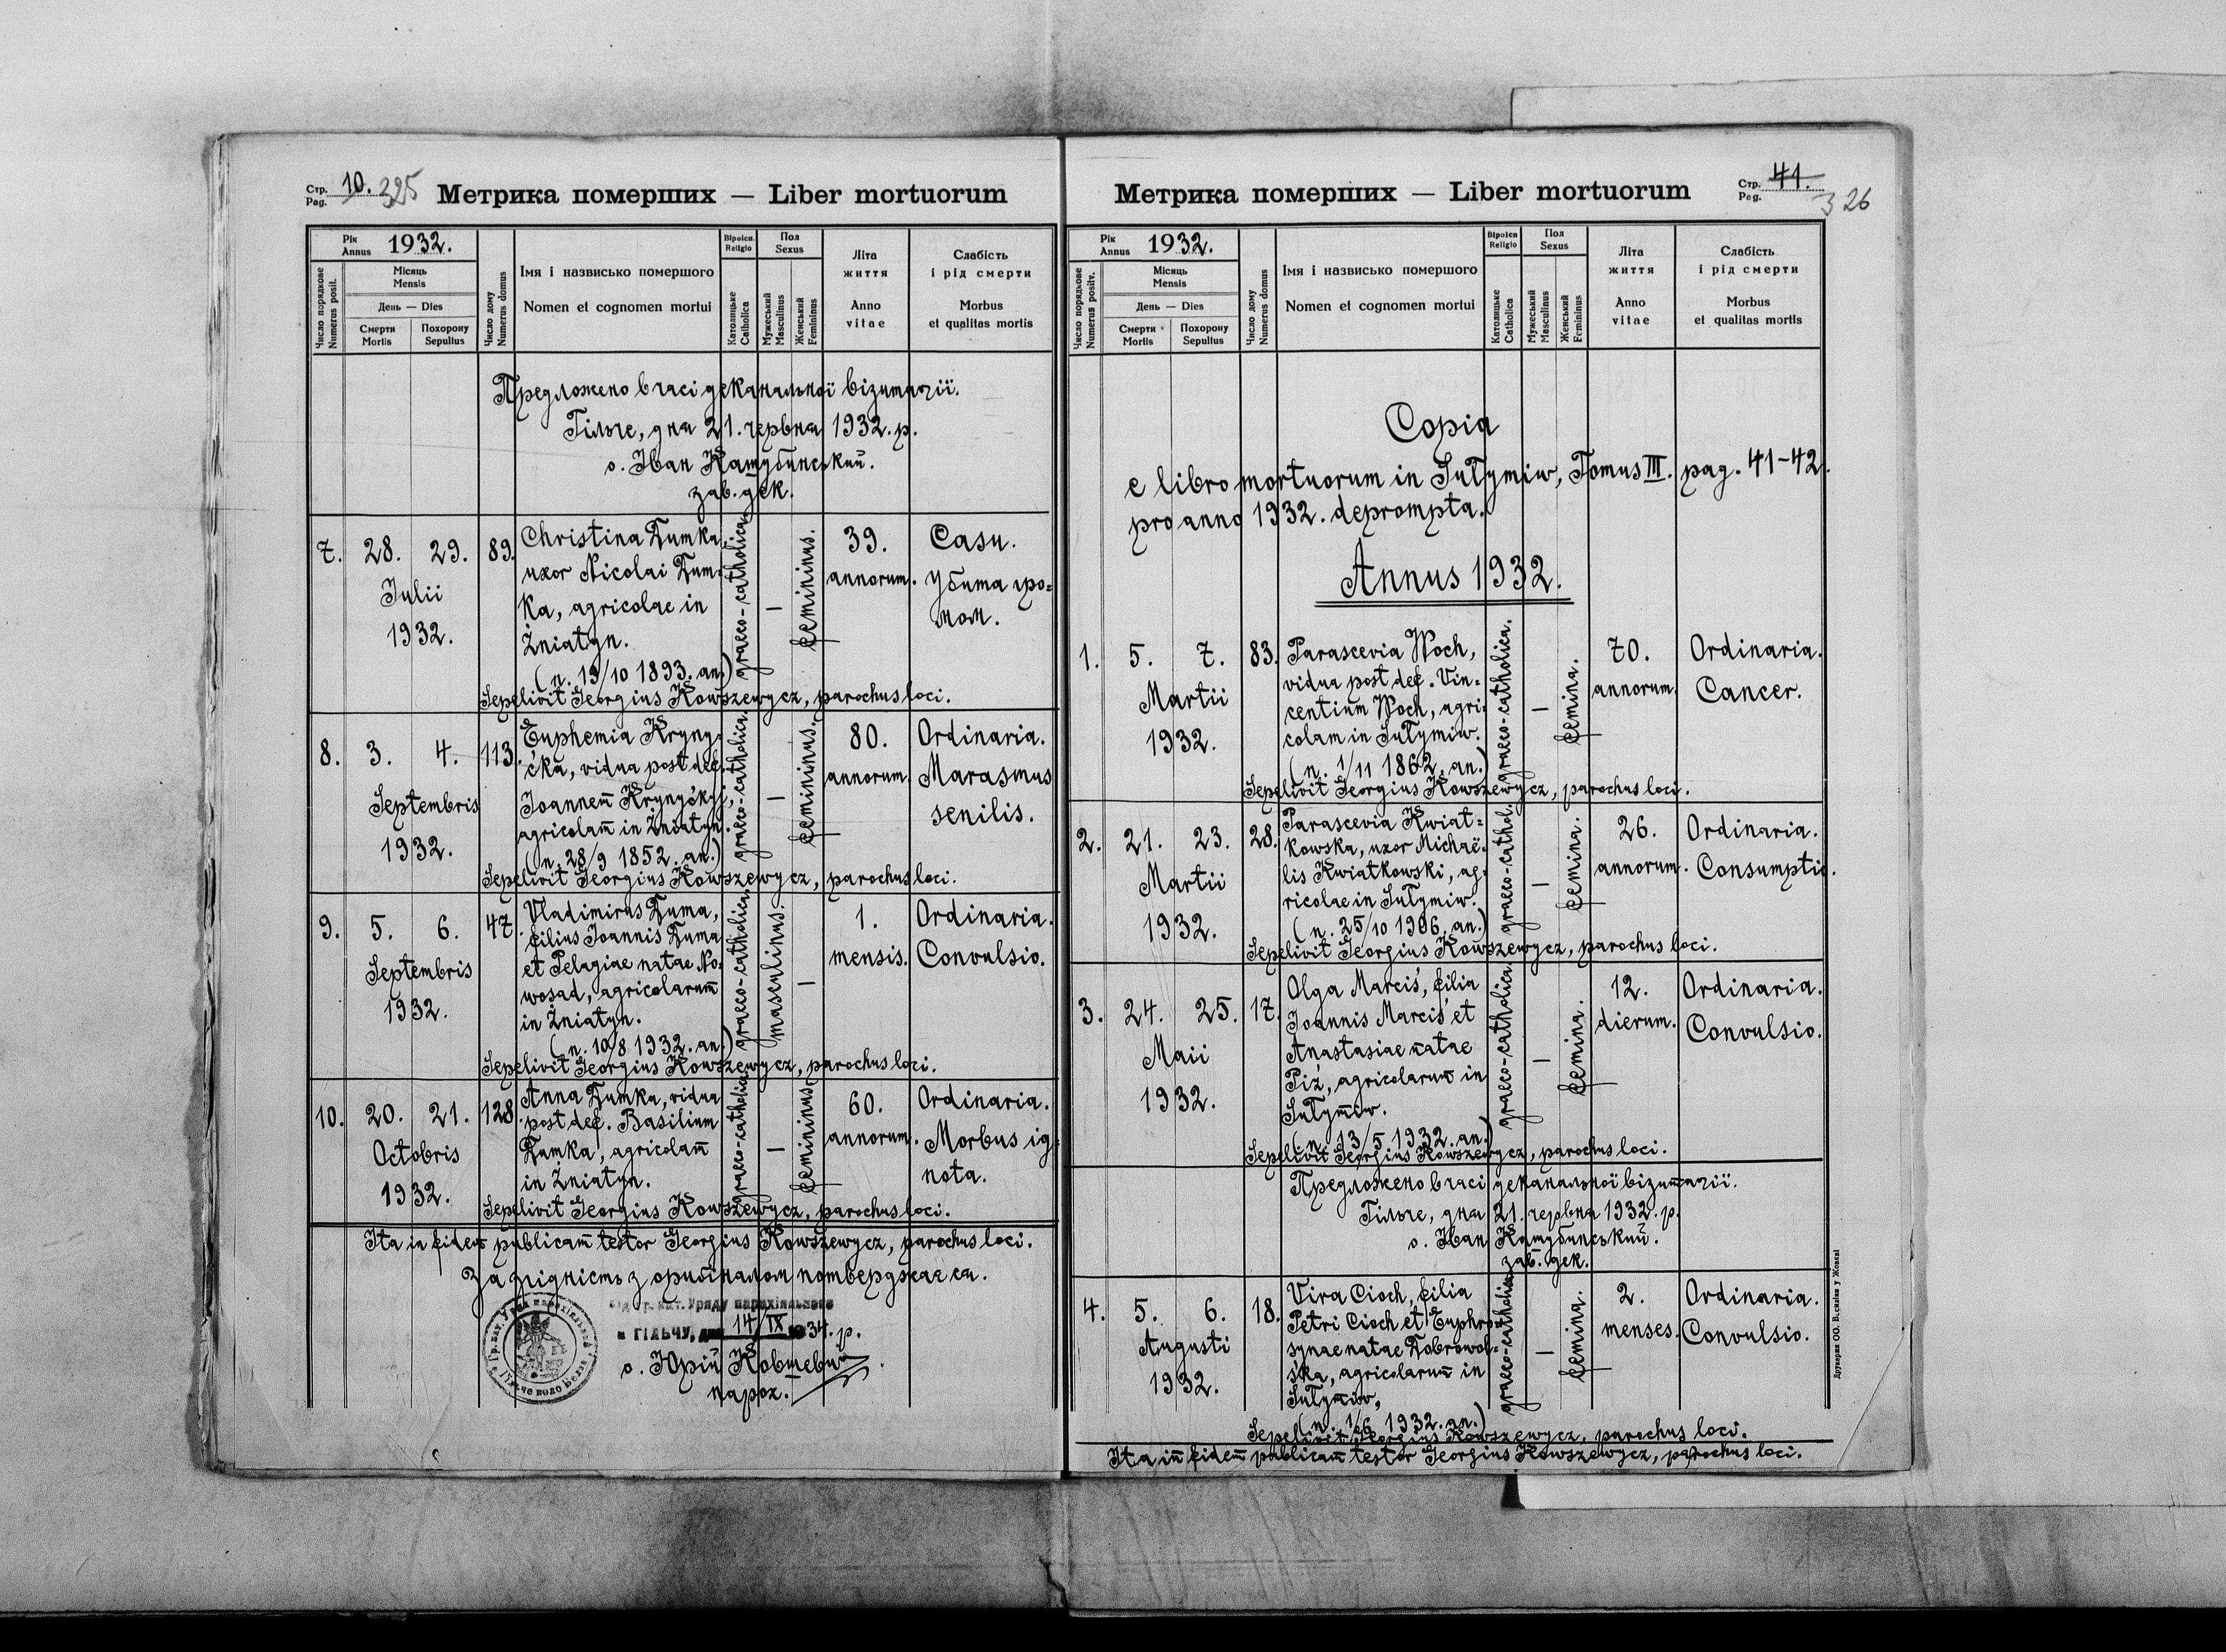 Стр. Pag. 10. 325
Метрика померших — Liber mortuorum
Рік Annus 1932.
Число порядкове Numerus posit.
Місяць Mensis
День — Dies
Смерти Mortis
Похорону Sepultus
Число дому Numerus domus
Імя і назвисько помершого
Nomen et cognomen mortui
Віроісп. Religio
Католицьке Catholica
Пол Sexus
Мужеський Masculinus
Женський Femininus
Літа життя
Anno vitae
Слабість і рід смерти
Morbus et qualitas mortis
Предложено в часі деканальної візитації.
Гільче, дня 21. червня 1932. р.
о. Іван Кашубинський.
зав. дек.
7. 28. 29. Julii 1932. 89.
Christina Dumka
uxor Nicolai Dum-
ka, agricolae in
Żniatyn.
(n. 19/10 1893. an.)
graeco-catholica. — femininus.
39. annorum.
Casu.
Убита гро-
мом.
Sepelivit Georgius Kowszewycz, parochus loci.
8. 3. 4. Septembris 1932. 113.
Euphemia Kryny-
ćka, vidua post def.
Joannem Krynyćkyj,
agricolam in Żniatyn.
(n. 28/9 1852. an.)
graeco-catholica. — femininus.
80. annorum.
Ordinaria.
Marasmus
senilis.
Sepelivit Georgius Kowszewycz, parochus loci.
9. 5. 6. Septembris 1932. 47.
Vladimirus Duma,
filius Joannis Duma
et Pelagiae natae No-
wosad, agricolarum
in Żniatyn.
(n. 10/8 1932. an.)
graeco-catholica. masculinus. —
1. mensis.
Ordinaria.
Convulsio.
Sepelivit Georgius Kowszewycz, parochus loci.
10. 20. 21. Octobris 1932. 128.
Anna Dumka, vidua
post def. Basilium
Dumka, agricolam
in Żniatyn.
graeco-catholica — femininus
60. annorum.
Ordinaria.
Morbus ig-
nota.
Sepelivit Georgius Kowszewycz, parochus loci.
Ita in fidem publicam testor Georgius Kowszewycz, parochus loci.
За згідність з оригіналом потверджаєся.
Від гр. кат. Уряду парохіяльного
в ГІЛЬЧУ, дня 14/IX 1934. р.
о. Юрій Ковшевич
парох.
Стр. Pag. 41. 326
Метрика померших — Liber mortuorum
Рік Annus 1932.
Число порядкове Numerus positv.
Місяць Mensis
День — Dies
Смерти Mortis
Похорону Sepultus
Число дому Numerus domus
Імя і назвисько помершого
Nomen et cognomen mortui
Віроісп Religio
Католицьке Catholica
Пол Sexus
Мужеський Masculinus
Женський Femininus
Літа життя
Anno vitae
Слабість і рід смерти
Morbus et qualitas mortis
Copia
e libro mortuorum in Sułymiw, Tomus III. pag. 41-42.
pro anno 1932. deprompta.
Annus 1932.
1. 5. 7. Martii 1932. 83.
Parascevia Woch,
vidua post def. Vin-
centium Woch, agri-
colam in Sułymiw.
(n. 1/11 1862. an.)
graeco-catholica. — femina.
70. annorum.
Ordinaria.
Cancer.
Sepelivit Georgius Kowszewycz, parochus loci.
2. 21. 23. Martii 1932. 28.
Parascevia Kwiat-
kowska, uxor Michaë-
lis Kwiatkowski, ag-
ricolae in Sułymiw.
(n. 25/10 1906. an.)
graeco-cathol. — femina.
26. annorum.
Ordinaria.
Consumptio.
Sepelivit Georgius Kowszewycz, parochus loci.
3. 24. 25. Maii 1932. 17.
Olga Marciś, filia
Joannis Marciś et
Anastasiae natae
Piź, agricolarum in
Sułymiw.
(n. 13/5 1932. an.)
graeco-catholica. — femina.
12. dierum.
Ordinaria.
Convulsio.
Sepelivit Georgius Kowszewycz, parochus loci.
Предложено в часі деканальної візитації.
Гільче, дня 21. червня 1932. р.
о. Іван Кашубинський.
заб. дек.
4. 5. 6. Augusti 1932. 18.
Vira Cioch, filia
Petri Cioch et Euphro-
synae natae Dobrowol-
śka, agricolarum in
Sułymiw,
(n. 1/6 1932. an.)
graeco-catholica — femina.
2. menses.
Ordinaria.
Convulsio.
Sepelivit Georgius Kowszewycz, parochus loci.
Ita in fidem publicam testor Georgius Kowszewycz, parochus loci.
Друкарня ОО. Василіян у Жовкві